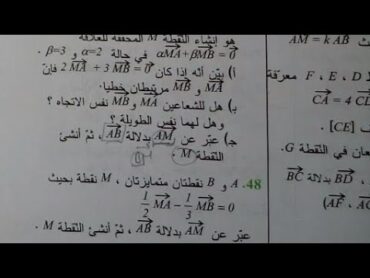 هو إنشاء النقطة M المحققة للعلاقة
αMA + βMB = 0 في حالة α=2 و β=3 .
أ) بيّن أنّه إذا كان 2 MA + 3 MB = 0 فإنّ
MA و MB مرتبطان خطيا.
ب) هل للشعاعين MA و MB نفس الاتجاه ؟
وهل لهما نفس الطويلة ؟
جـ) عبّر عن AM بدلالة AB ، ثمّ أنشئ
النقطة M .
48. A و B نقطتان متمايزتان ، M نقطة بحيث
1/2 MA − 1/3 MB = 0
عبّر عن AM بدلالة AB ، ثمّ أنشئ النقطة M .
AM = k AB
F ، E ، D معرّفة
CA = 4 CL
[CE].
في النقطة G.
BD ، بدلالة BC
(AF ،